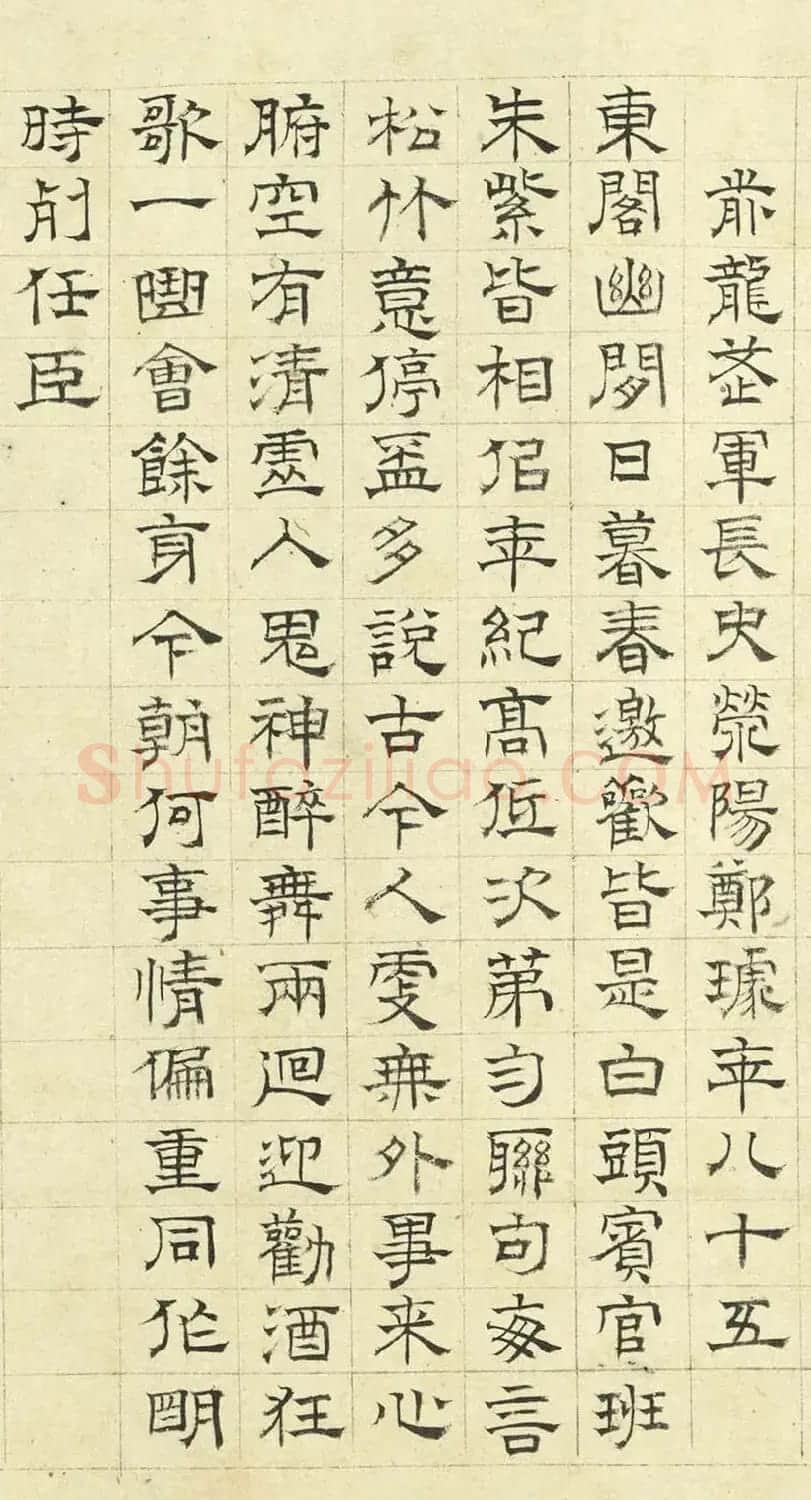 前龍武軍長史滎陽鄭璩年八十五
東閣幽閑日暮春邀歡皆是白頭賓官班
朱紫皆相似年紀高低次第勻聯句每言
松竹意停盃多說古今人更無外事来心
腑空有清虛入思神醉舞兩迴迎勸酒狂
歌一曲會餘身今朝何事情偏重同作明
時列任臣
Shufaziliao.COM